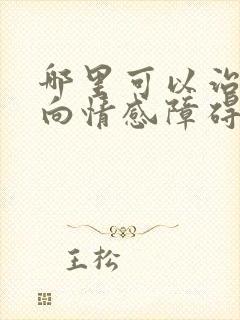 哪里可以治
向情感障碍
王松